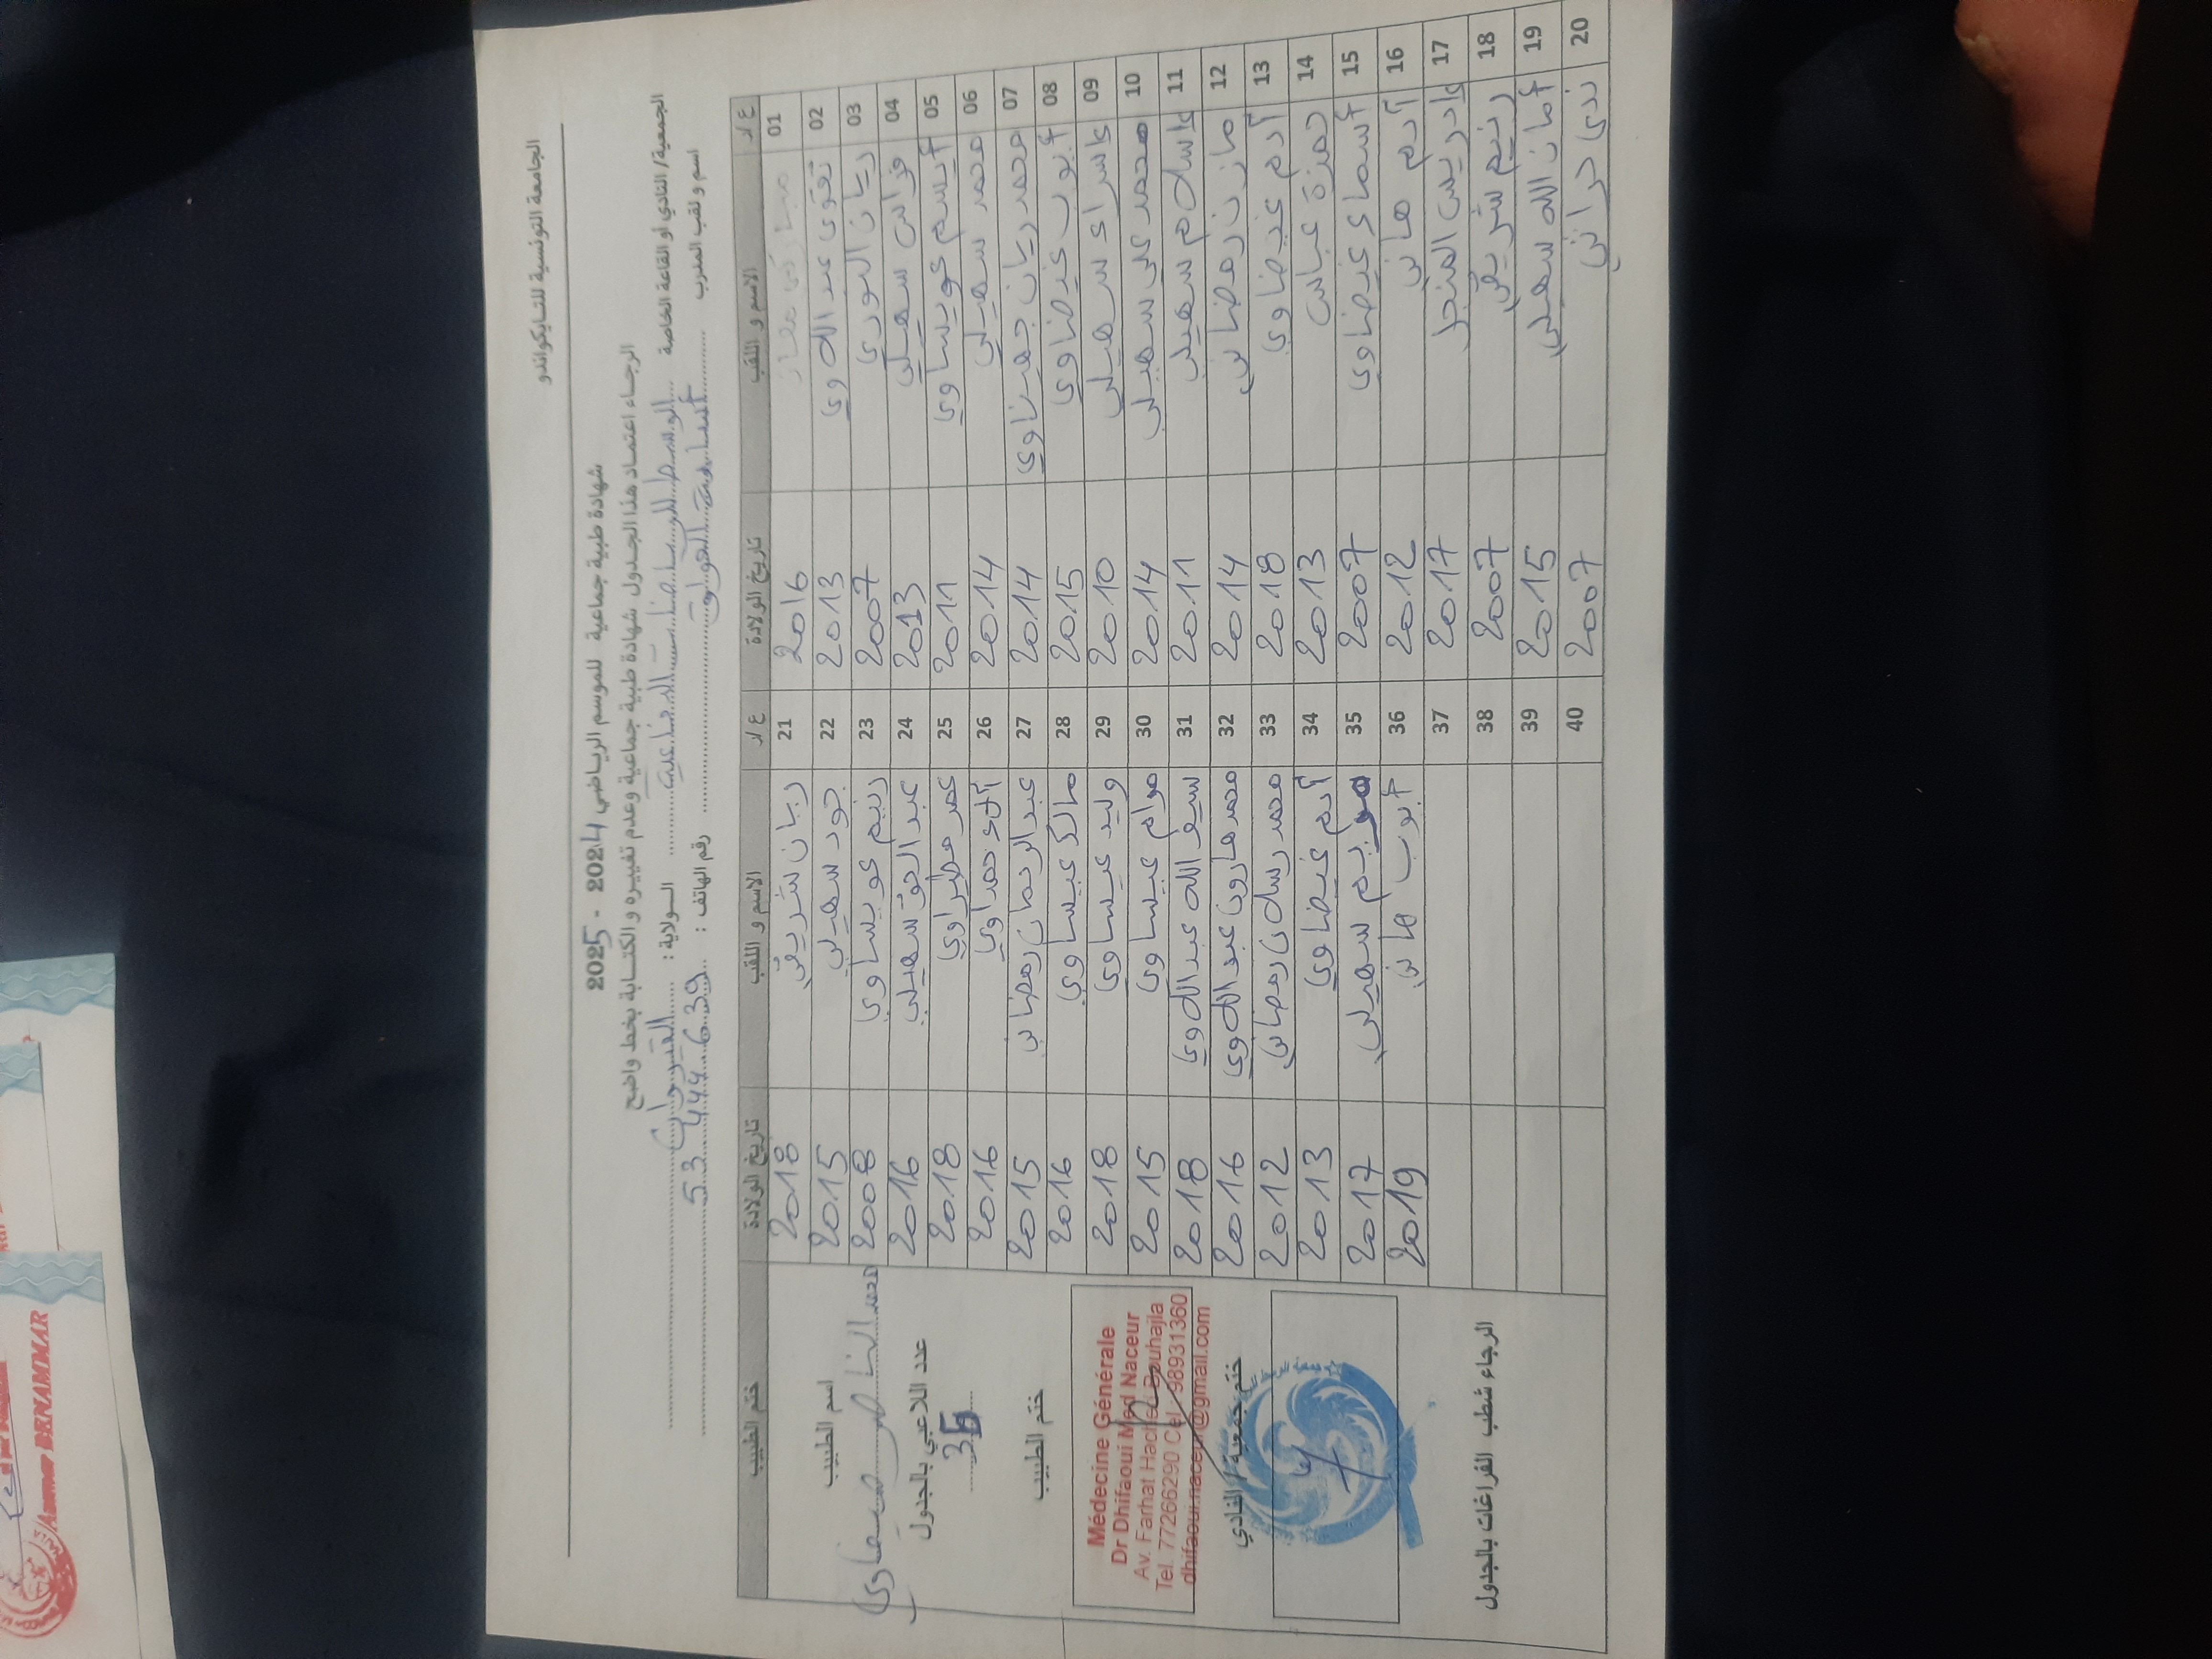 الجامعة التونسية للتايكواندو
شهادة طبية جماعية للموسم الرياضي 2024 - 2025
الرجاء اعتماد هذا الجدول شهادة طبية جماعية وعدم تغييره و الكتابة بخط واضح
الجمعية/ النادي أو القاعة الخاصة الولاية : القيروان
اسم و لقب المدرب أسامة رقم الهاتف : 53 444 639
ع ر الاسم و اللقب تاريخ الولادة ع ر الاسم و اللقب تاريخ الولادة ختم الطبيب
01 2016 21 ريان شريقي 2018
02 تقوى عبد اللاوي 2013 22 جود سهيلي 2015
03 ريان النوري 2007 23 رنيم عويساوي 2008
04 فراس سهيلي 2013 24 عبد الحق سهيلي 2016
05 عويساوي 2011 25 عمر 2018
06 محمد سهيلي 2014 26 حمداوي 2016
07 محمد ريان 2014 27 عبد الرحمان رمضاني 2015
08 أيوب غيضاوي 2015 28 مالك عيساوي 2016
09 إسراء سهيلي 2010 29 وليد عيساوي 2018
10 محمد علي سهيلي 2014 30 مرام عيساوي 2015
11 إسلام سهيلي 2011 31 سيف الله عبد اللاوي 2018
12 مازن رمضاني 2014 32 محمد هارون عبد اللاوي 2016
13 آدم غيضاوي 2018 33 محمد رسلان رمضاني 2012
14 حمزة عباس 2013 34 آدم غيضاوي 2013
15 أسماء غيضاوي 2007 35 مريم سهيلي 2017
16 آدم هاني 2012 36 أيوب هاني 2019
17 إدريس المنجل 2017 37
18 رنيم شريقي 2007 38
19 أمان الله سهيلي 2015 39
20 ندى حراثي 2007 40
اسم الطبيب
محمد الناصر ضيفاوي
عدد اللاعبي بالجدول
36
ختم الطبيب
Médecine Générale
Dr Dhifaoui Med Naceur
Av. Farhat Hached Bouhajla
Tel. 77266290 Cel : 98931360
dhifaoui.naceur@gmail.com
ختم جمعية / النادي
الرجاء شطب الفراغات بالجدول
Ammar BENAMMAR